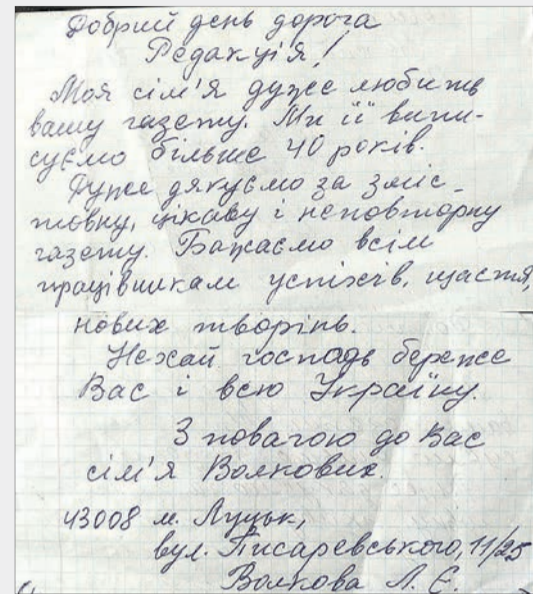 Добрий день дорога
Редакція!
Моя сім'я дуже любить
вашу газету. Ми її випи-
суємо більше 40 років.
Дуже дякуємо за зміс-
товну, цікаву і неповторну
газету. Бажаємо всім
працівникам успіхів, щастя,
нових творінь.
Нехай господь береже
Вас і всю Україну.
З повагою до Вас
сім'я Волкових.
43008 м. Луцьк,
вул. Писаревського, 11/25
Волкова Л. Є.